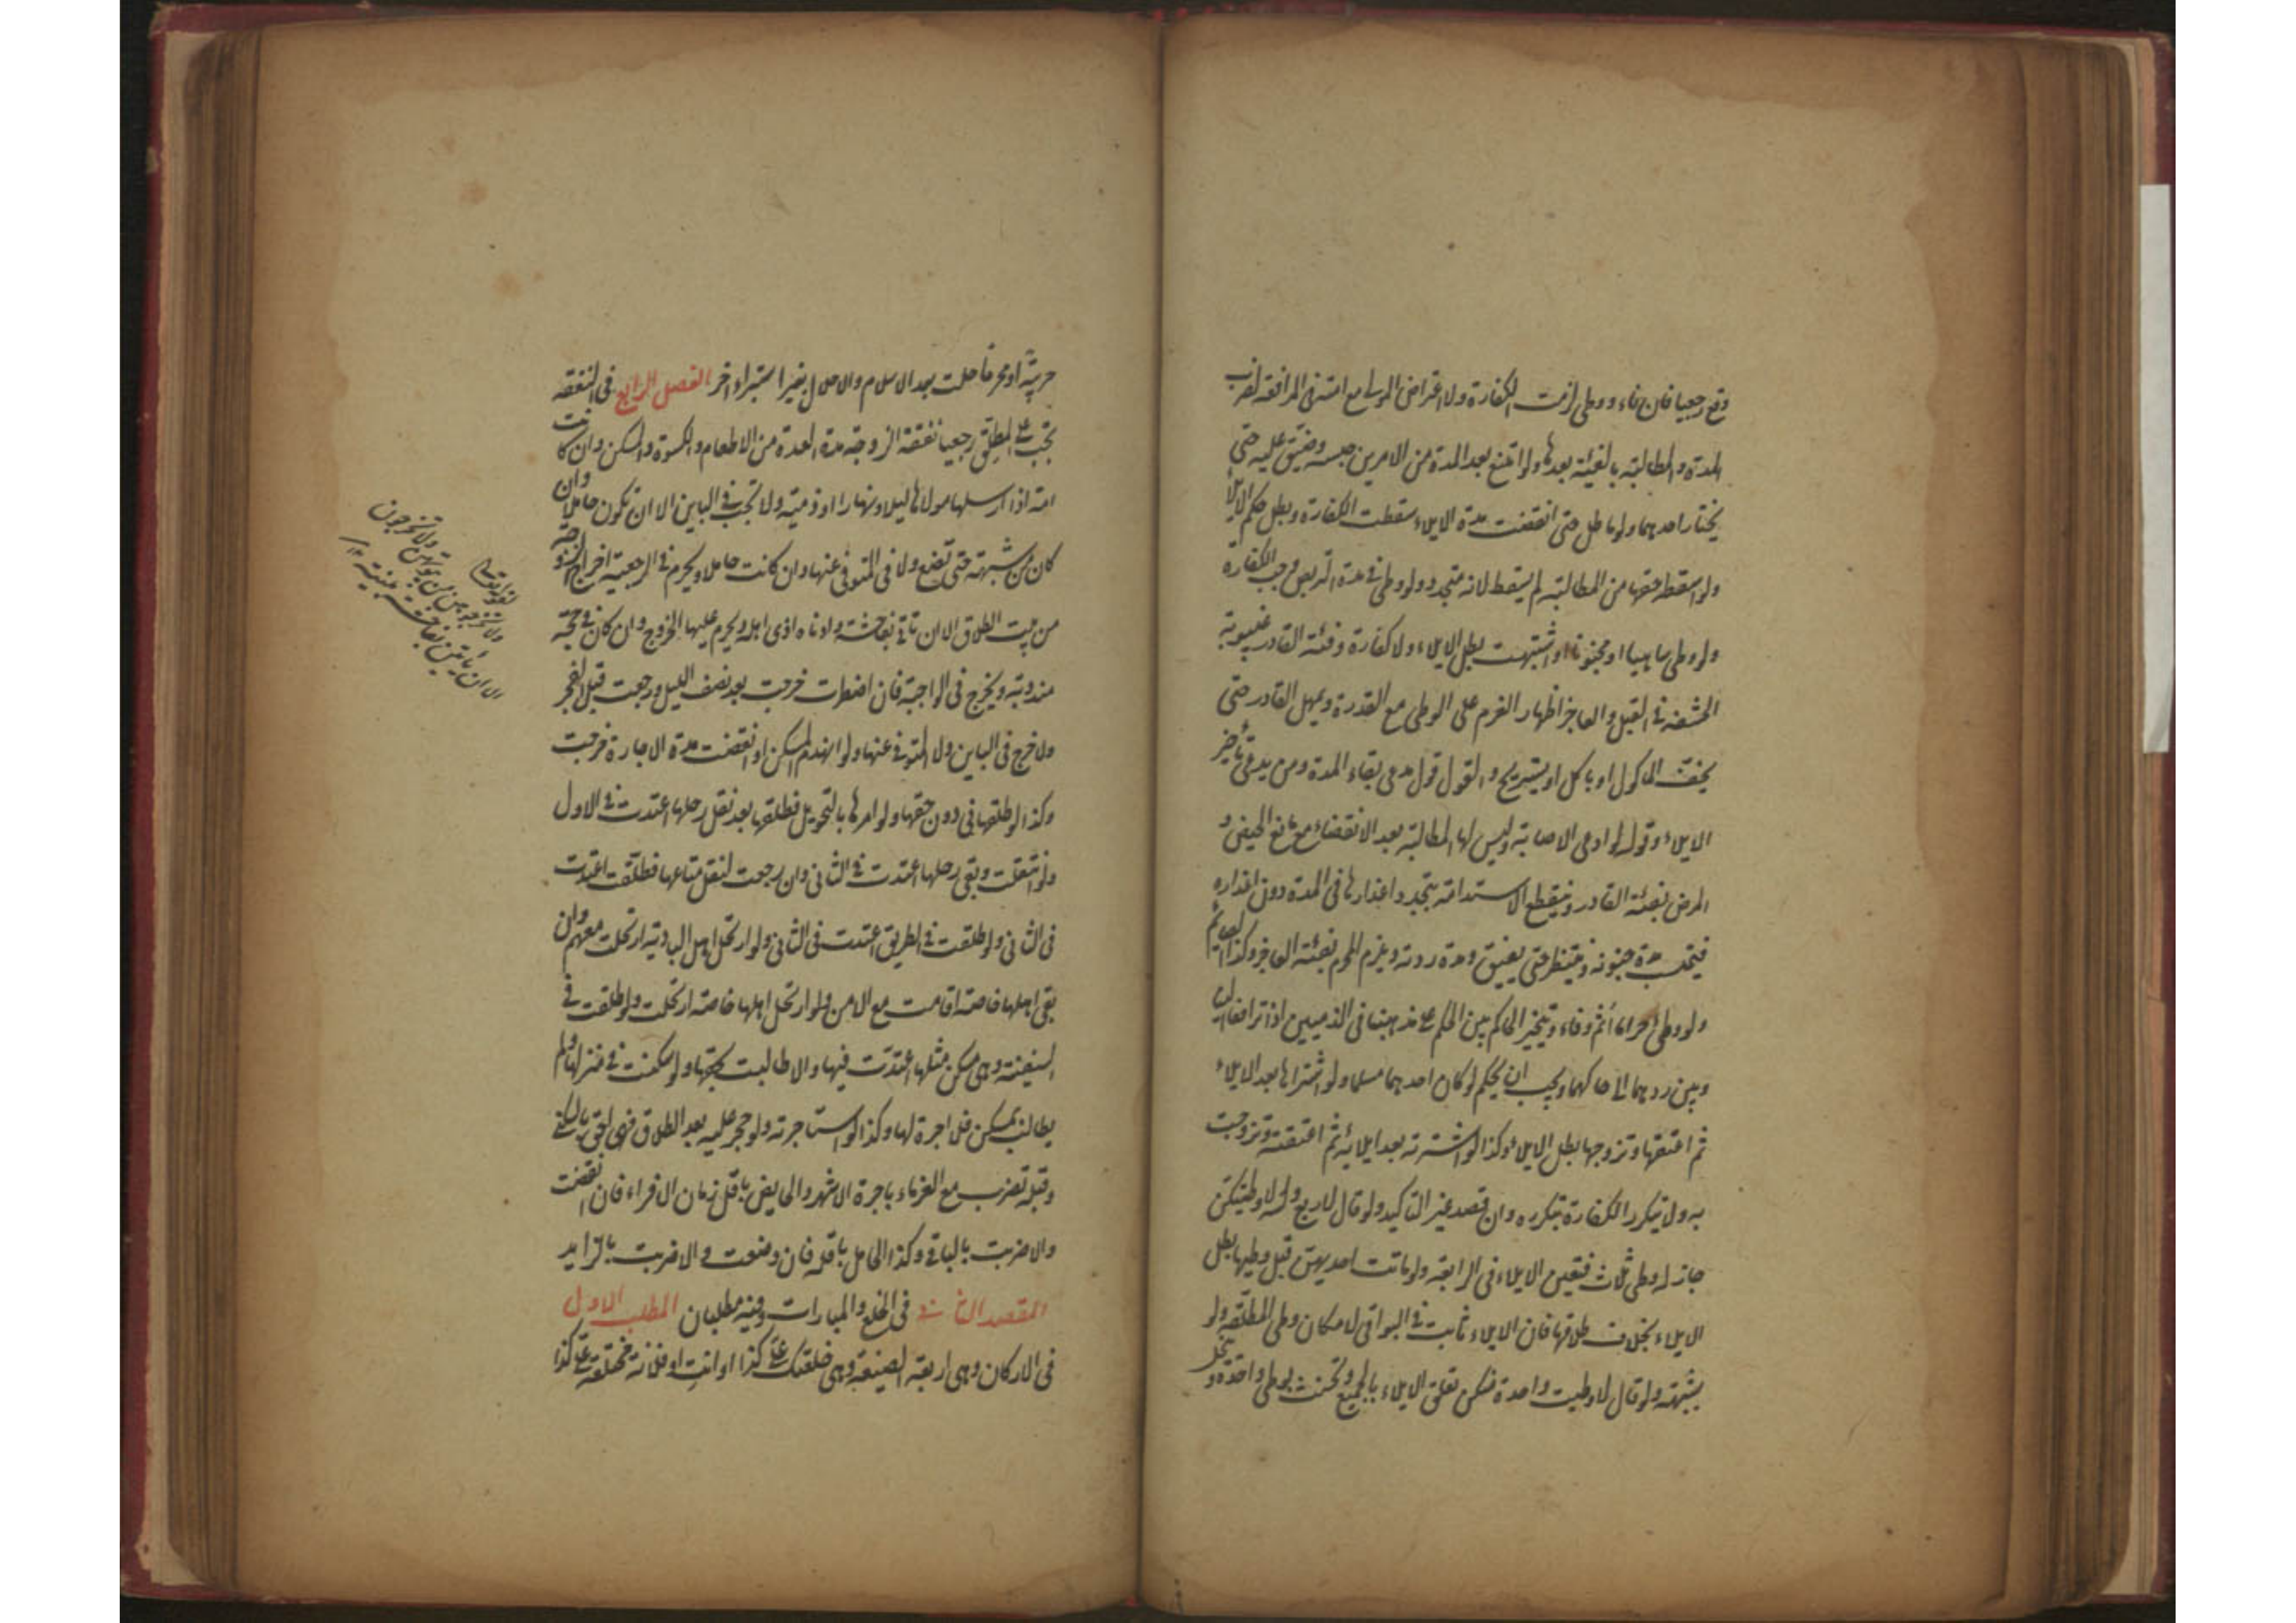 وقع رجعيا فان فاء ووطى لزمت الكفارة ولا اعتراض للمولى مع امتناع المرافعة لضرب
المدة والمطالبة بالفيئة بعدها ولو امتنع بعد المدة من الامرين حبسه وضيق عليه حتى
يختار احدهما ولو ماطل حتى انقضت مدة الايلاء سقطت الكفارة وبطل حكم الايلاء
ولو اسقط حقها من المطالبة لم يسقط لانه متجدد ولو وطى في مدة التربص وجب الكفارة
ولو وطى ساهيا او مجنونا او اشتبهت بطل الايلاء ولا كفارة وفئة القادر غيبوبة
الحشفة في القبل والعاجز اظهار العزم على الوطى مع القدرة ويمهل القادر حتى
يخف الماكول او ياكل او يستريح والقول قول مدعى بقاء المدة ومن يدعى تأخير
الايلاء وقوله لو ادعى الاصابة وليس لها المطالبة بعد الانقضاء مع مانع الحيض و
المرض بفئة القادر وينقطع الاستدامة بتجدد اعذارها في المدة دون اعذاره
فيحتسب مدة جنونه وينتظر حتى يفيق ومدة ردته ويلزم المحرم بفئة العاجز وكذا الصائم
ولو وطئ حراما اثم وفاء ويتخير الحاكم بين الحكم على مذهبنا في الذميين اذا ترافعا الينا
وبين ردهما الى حاكمهما ويجب ان يحكم لو كان احدهما مسلما ولو اشتراها بعد الايلاء
ثم اعتقها وتزوجها بطل الايلاء وكذا لو اشترته بعد ايلائه ثم اعتقته وتزوجت
به ولا يتكرر الكفارة بتكرره وان قصد غير التاكيد ولو قال لاربع والله لا وطئتكن
جاز له وطى ثلاث فتعين الايلاء في الرابعة ولو ماتت احديهن قبل وطيها بطل
الايلاء بخلاف طلاقها فان الايلاء ثابت في البواقى لامكان وطى المطلقة ولو
بشبهة ولو قال لا وطيت واحدة منكن تعلق الايلاء بالجميع وتحنث بوطى واحدة و
تنحل
حربية او محرما حلت بعد الاسلام والاحلال بغير استبراء اخر الفصل الرابع في النفقة
تجب على المطلق رجعيا نفقة الزوجة مدة العدة من الاطعام والكسوة والمسكن وان كانت
امة اذا ارسلها مولاها ليلا ونهارا او ذمية ولا تجب في البائن الا ان تكون حاملا وان
كان من شبهة حتى تضع ولا في المتوفى عنها وان كانت حاملا ويحرم في الرجعية اخراج الزوجة
من بيت الطلاق الا ان تأتى بفاحشة وادناه اذى اهله ويحرم عليها الخروج وان كان في حجة
مندوبة ويخرج في الواجبة فان اضطرت خرجت بعد نصف الليل ورجعت قبل الفجر
ولا حرج في البائن ولا المتوفى عنها ولو انهدم المسكن او انقضت مدة الاجارة خرجت
وكذا لو طلقها في دون حقها ولو امرها بالتحويل فطلقها بعد نقل رحلها اعتدت في الاول
ولو انتقلت وبقى رحلها اعتدت في الثانى وان رجعت لنقل متاعها فطلقت اعتدت
في الثانى ولو طلقت في الطريق اعتدت في الثانى ولو ارتحل اهل البادية ارتحلت معهم وان
بقى اهلها خاصة اقامت مع الامن ولو ارتحل اهلها خاصة ارتحلت ولو طلقت في
السفينة وهى مسكن مثلها اعتدت فيها والا طالبت بحقها ولو سكنت في منزلها ولم
يطالب بمسكن فلا اجرة لها وكذا لو استاجرته ولو حجر عليه بعد الطلاق فهى احق بالسكنى
وقبله تضرب مع الغرماء باجرة الاشهر والحايض باقل زمان الاقراء فان انقضت
والا ضربت بالباقى وكذا الحامل باقله فان وضعت والا ضربت بالزايد
المقصد الثانى في الخلع والمبارات وفيه مطلبان المطلب الاول
في الاركان وهى اربعة الصيغة وهى خلعتك على كذا او انت او فلانة مختلعة على كذا
لقوله تعالى
ولا تخرجوهن من بيوتهن ولا يخرجن
الا ان يأتين بفاحشة مبينة ١٢